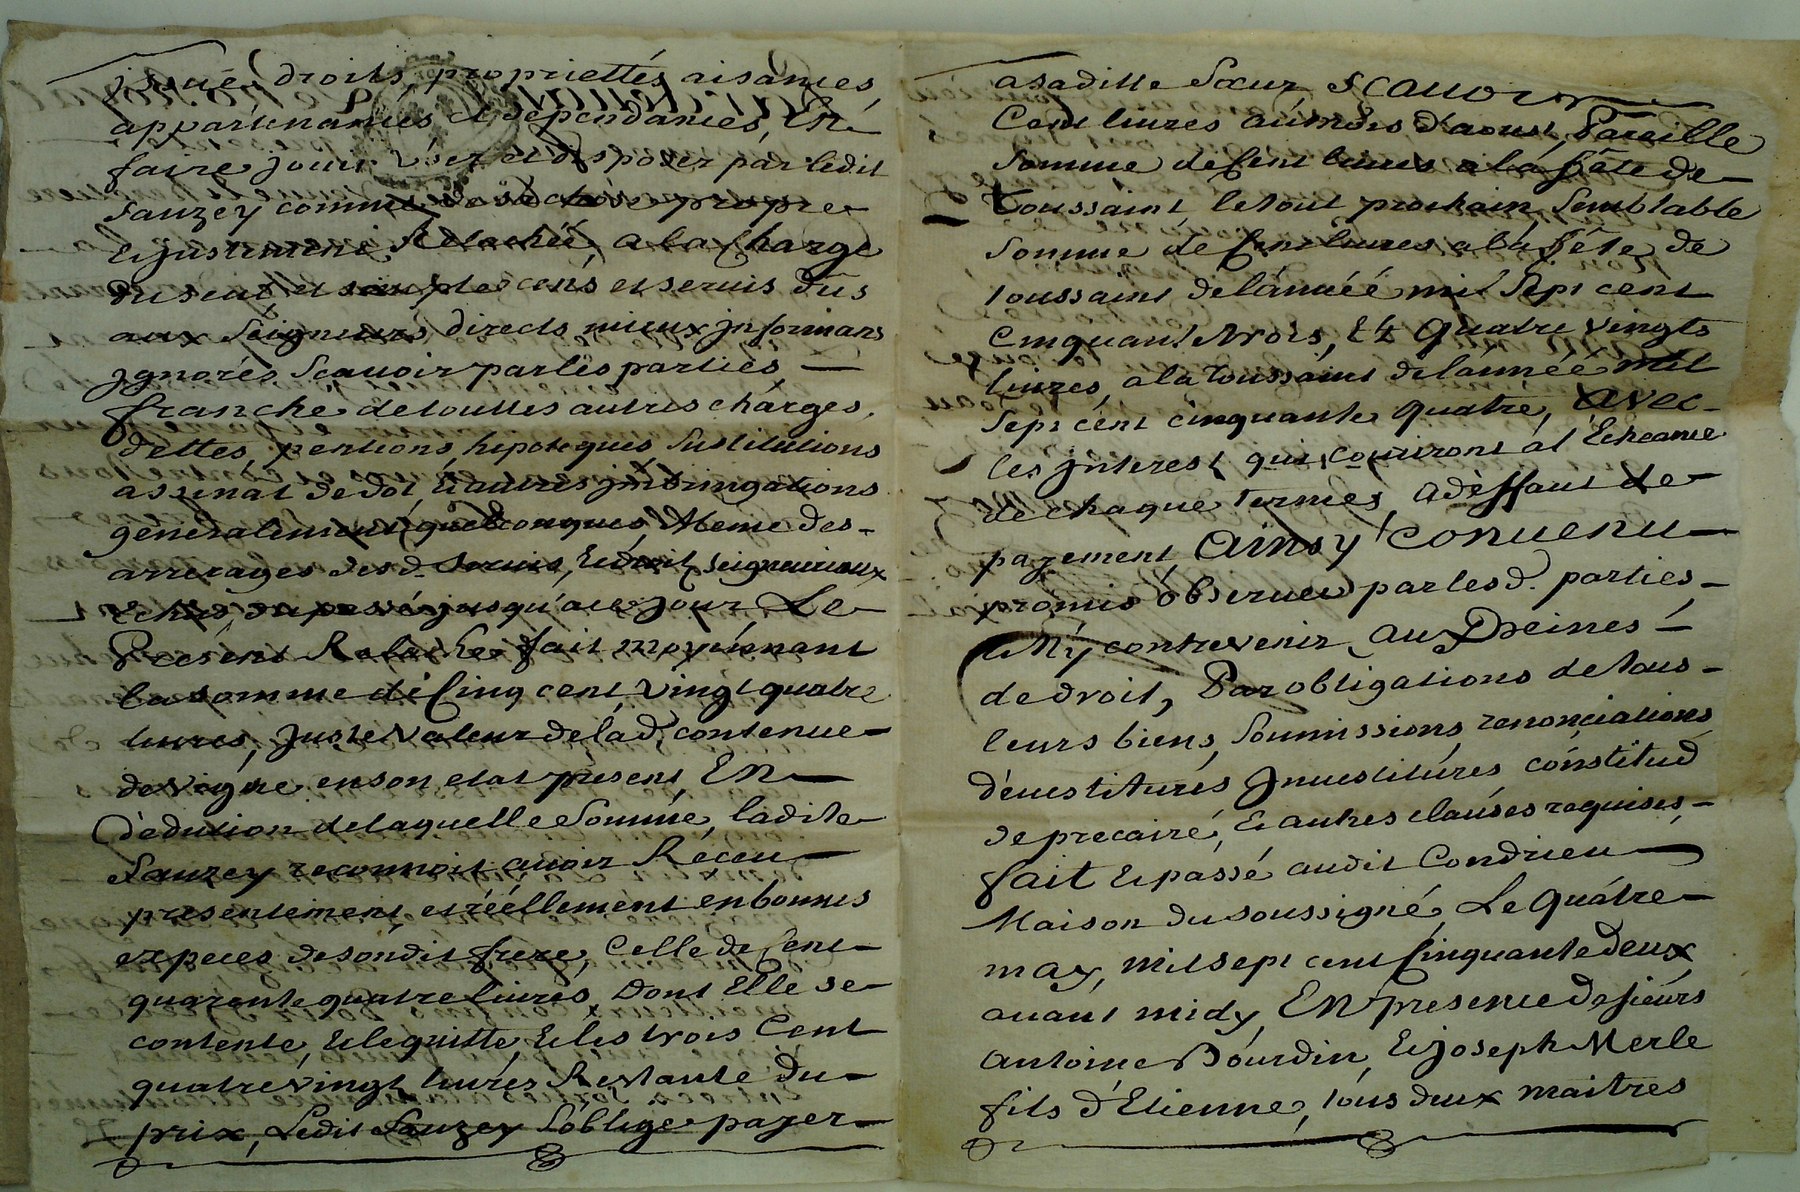 issuës, droits, propriettés aisances
appartenances et dependances, En
faire jouir User et disposer par ledit
Sauzey comme de sa chose propre
Et justement Relachée, a la Charge
du seul et simple cens et servis dûs
aux Seigneurs directs mieux informans
Ignorés Sçauoir par lës parties
franche de touttes autres charges,
dettes, pentions, hipoteques Sustitutions
assinat de dot, Et autres
généralement quelconques, Meme des
arrerages desd. servis, Et droits seigneuriaux
Echus, du passé jusqu'a ce jour. Le
Present Relachée fait moyennant
la somme de Cinq cent vingt quatre
liures, Juste Valeur de lad. contenue
de vigne en son etat present, En
déduction de laquelle Somme, ladite
Sauzey reconnoit auoir Receu
presentement et réëllement en bonnes
especes de son dit frere, Celle de Cent
quarente quatre liures, Dont Elle se
contente, Et le quitte, Et les trois Cent
quatre vingt liures Restante du
prix, Ledit Sauzey S'oblige payer
a sa ditte Sœur Scauoir
Cent liures au mois d'aoust, Pareille
Somme de Cent liures a la fête de
Toussaint, le tout prochain, Semblable
Somme de Cent liures a la fête de
toussaint de l'année mil Sept cent
Cinquant trois, Et Quatre vingts
liures, a la Toussaint de l'année mil
Sept cent cinquante quatre, Avec
les jnterest qui courront a l'Echeance
de chaque Termes, a deffaut de
payement, Ainsy convenu
promis observer par lesd. parties,
Et N'y contrevenir aux Peines
de droit, Par obligations de tous
leurs biens, Soumissions, renonciations,
dévestitures Jnvestitures, constitud
de precaire, Et autres clauses requises,
fait Et passé audit Condrieu
Maison du soussigné, Le Quátre
may, mil sept cent Cinquante deux
auant midy, En presence de sieurs
Antoine Bourdin, Et joseph Merle
fils d'Etienne, tous deux maitres